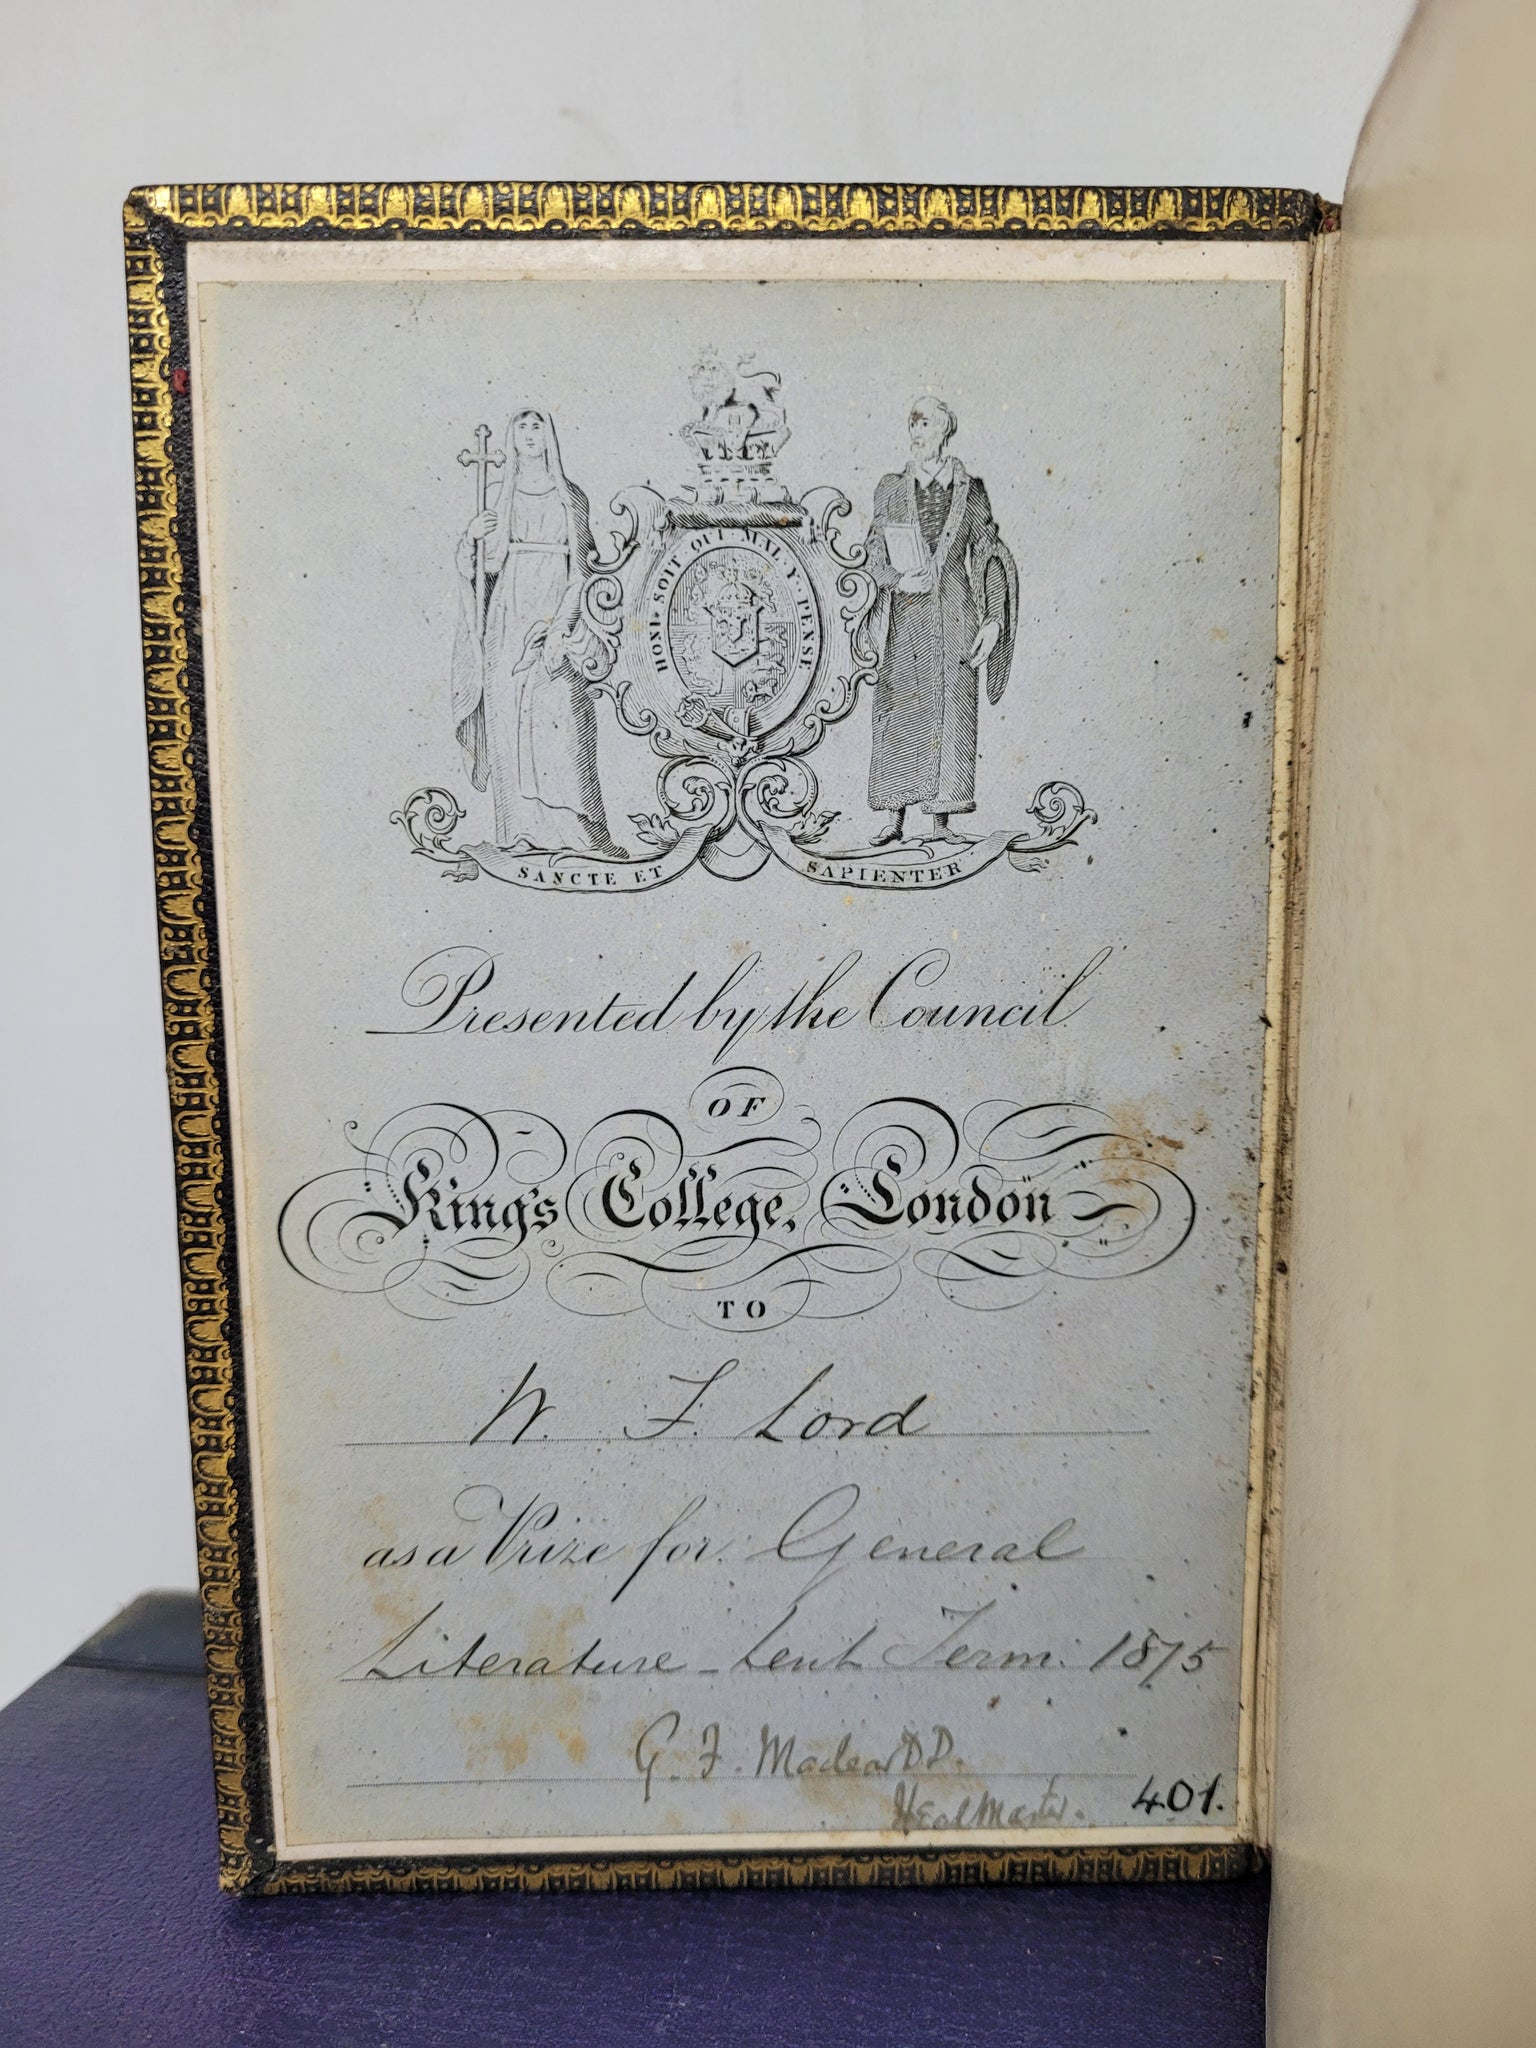 HONI · SOIT QUI MAL Y · PENSE
SANCTE ET SAPIENTER
Presented by the Council
OF
King's College, London
TO
W. F. Lord
as a Prize for General
Literature - Lent Term: 1875
G. F. Maclear D D.
Head Master.
401.